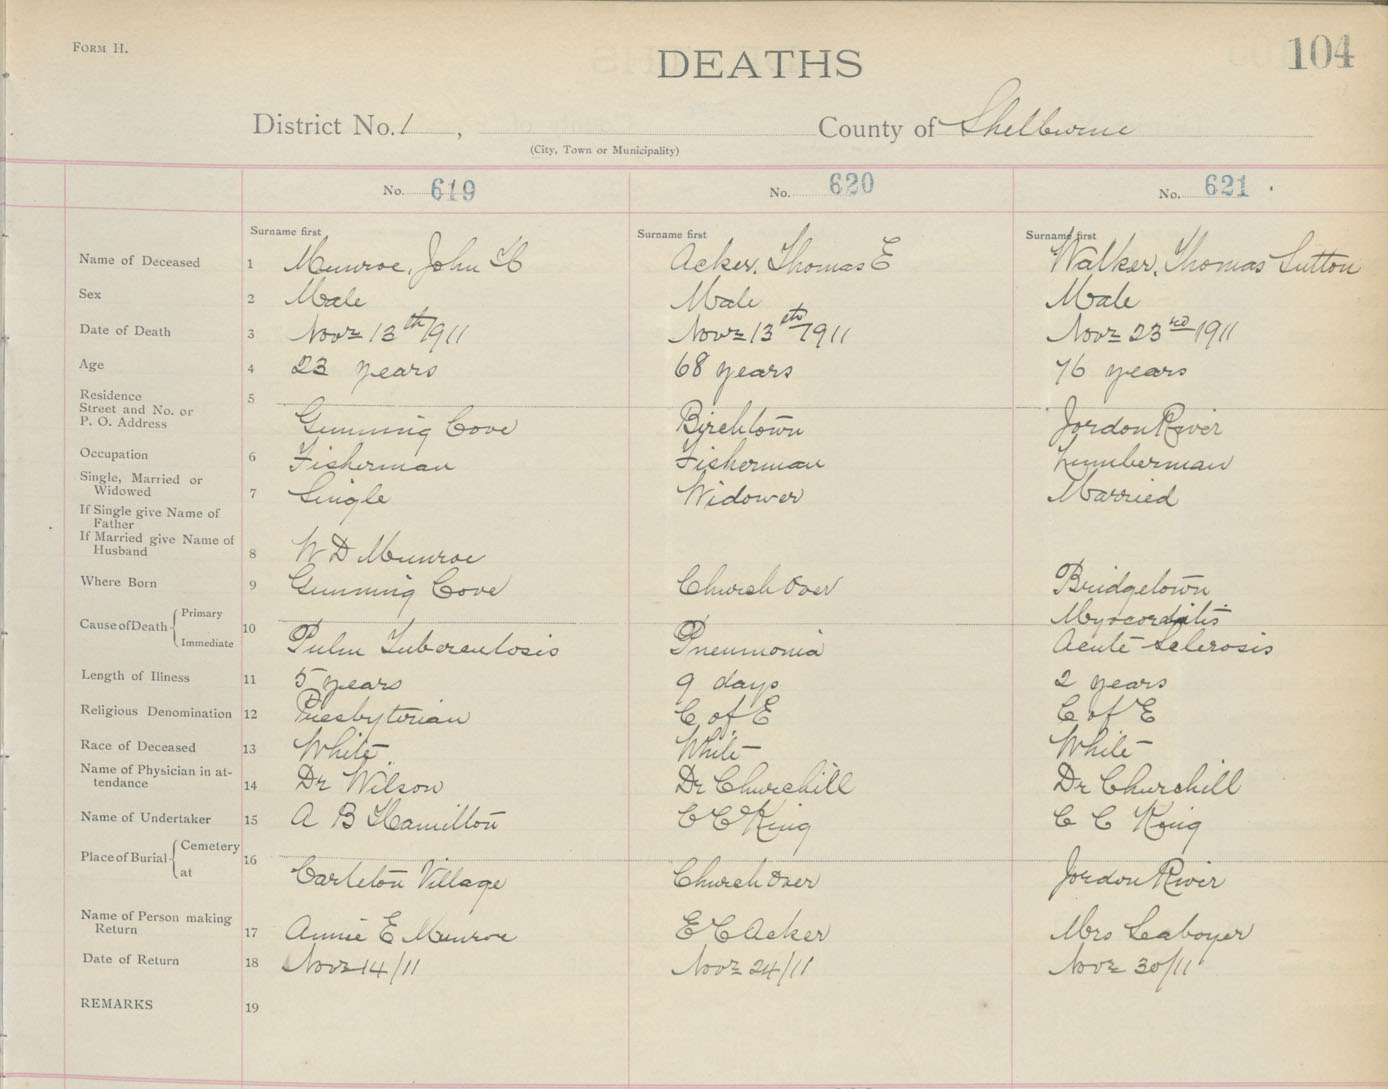 FORM H.
DEATHS
104
District No. 1 , County of Shelburne
(City, Town or Municipality)
No. 619 No. 620 No. 621
Surname first Surname first Surname first
Name of Deceased 1 Munroe, John H Acker, Thomas E Walker, Thomas Sutton
Sex 2 Male Male Male
Date of Death 3 Novr 13th 1911 Novr 13th 1911 Novr 23rd 1911
Age 4 23 years 68 years 76 years
Residence 5
Street and No. or
P. O. Address Gunning Cove Birchtown Jordon River
Occupation 6 Fisherman Fisherman Lumberman
Single, Married or
Widowed 7 Single Widower Married
If Single give Name of
Father
If Married give Name of
Husband 8 W D Munroe
Where Born 9 Gunning Cove Church Over Bridgetown
Cause of Death Primary 10 Myocorditis
Immediate Pulm Tuberculosis Pneumonia Acute Sclerosis
Length of Illness 11 5 years 9 days 2 years
Religious Denomination 12 Presbyterian C of E C of E
Race of Deceased 13 White White White
Name of Physician in at-
tendance 14 Dr Wilson Dr Churchill Dr Churchill
Name of Undertaker 15 A B Hamilton C C King C C King
Place of Burial Cemetery 16
at Carleton Village Church Over Jordon River
Name of Person making
Return 17 Annie E Munroe E C Acker Mrs Seaboyer
Date of Return 18 Novr 14/11 Novr 24/11 Novr 30/11
REMARKS 19